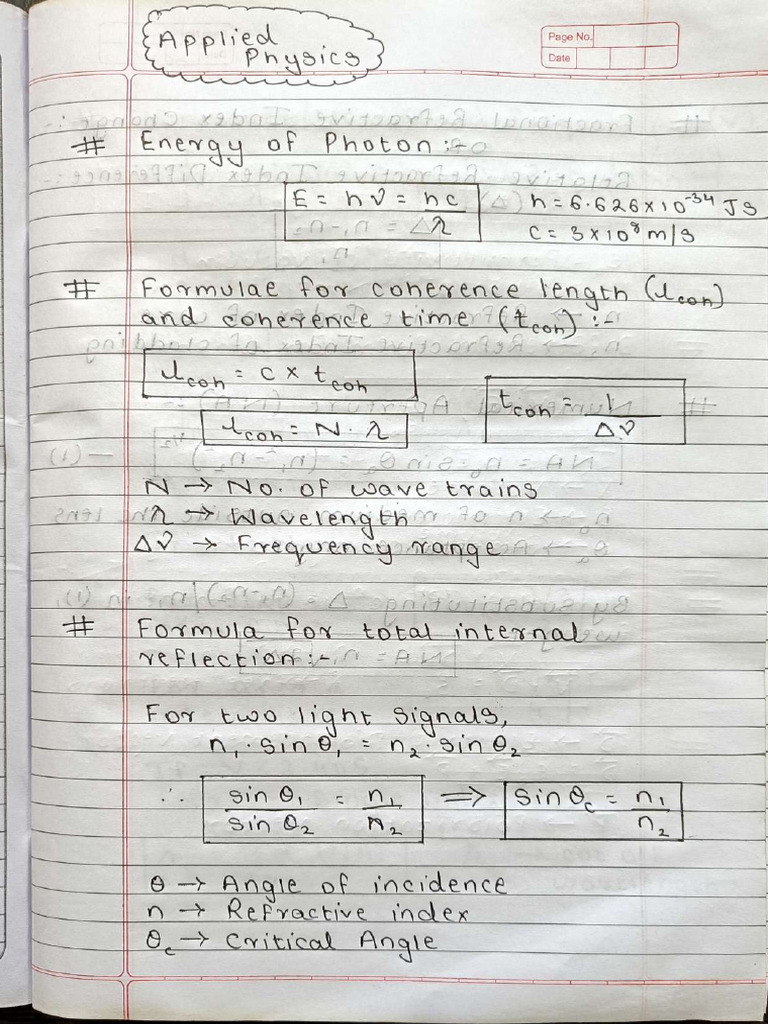 Applied
Physics
Page No.
Date
# Energy of Photon :-
E = hν = hc/λ h = 6.626 × 10⁻³⁴ JS
c = 3 × 10⁸ m/s
# Formulae for coherence length (lcoh)
and coherence time (tcoh) :-
lcoh = c × tcoh
tcoh = 1/Δν
lcoh = N · λ
N → No. of wave trains
λ → Wavelength
Δν → Frequency range
# Formula for total internal
reflection :-
For two light signals,
n₁ · sin θ₁ = n₂ · sin θ₂
∴ sin θ₁/sin θ₂ = n₁/n₂ ⟹ sin θc = n₁/n₂
θ → Angle of incidence
n → Refractive index
θc → Critical Angle